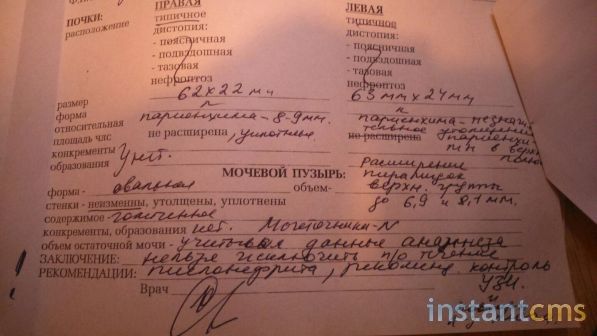 ПОЧКИ: ПРАВАЯ ЛЕВАЯ
расположение типичное типичное
дистопия: дистопия:
- поясничная - поясничная
- подвздошная - подвздошная
- тазовая - тазовая
нефроптоз нефроптоз
размер 62х22 мм 63 мм х 24 мм
форма N N
относительная паренхима - 8-9 мм. паренхима
площадь члс не расширена, уплотнены не расширена
конкременты Унит. паренхи-
образования расширение
МОЧЕВОЙ ПУЗЫРЬ: пирамидок
форма - овальная объем- верхн. группы
стенки - неизменны, утолщены, уплотнены до 6,9 и 8,1 мм.
содержимое -
конкременты, образования нет. Мочеточники - N
объем остаточной мочи - учитывая данные анамнеза
ЗАКЛЮЧЕНИЕ: нельзя исключить п/о течение
РЕКОМЕНДАЦИИ: пиелонефрита, рекоменд. контроль
УЗИ.
Врач
instantcms